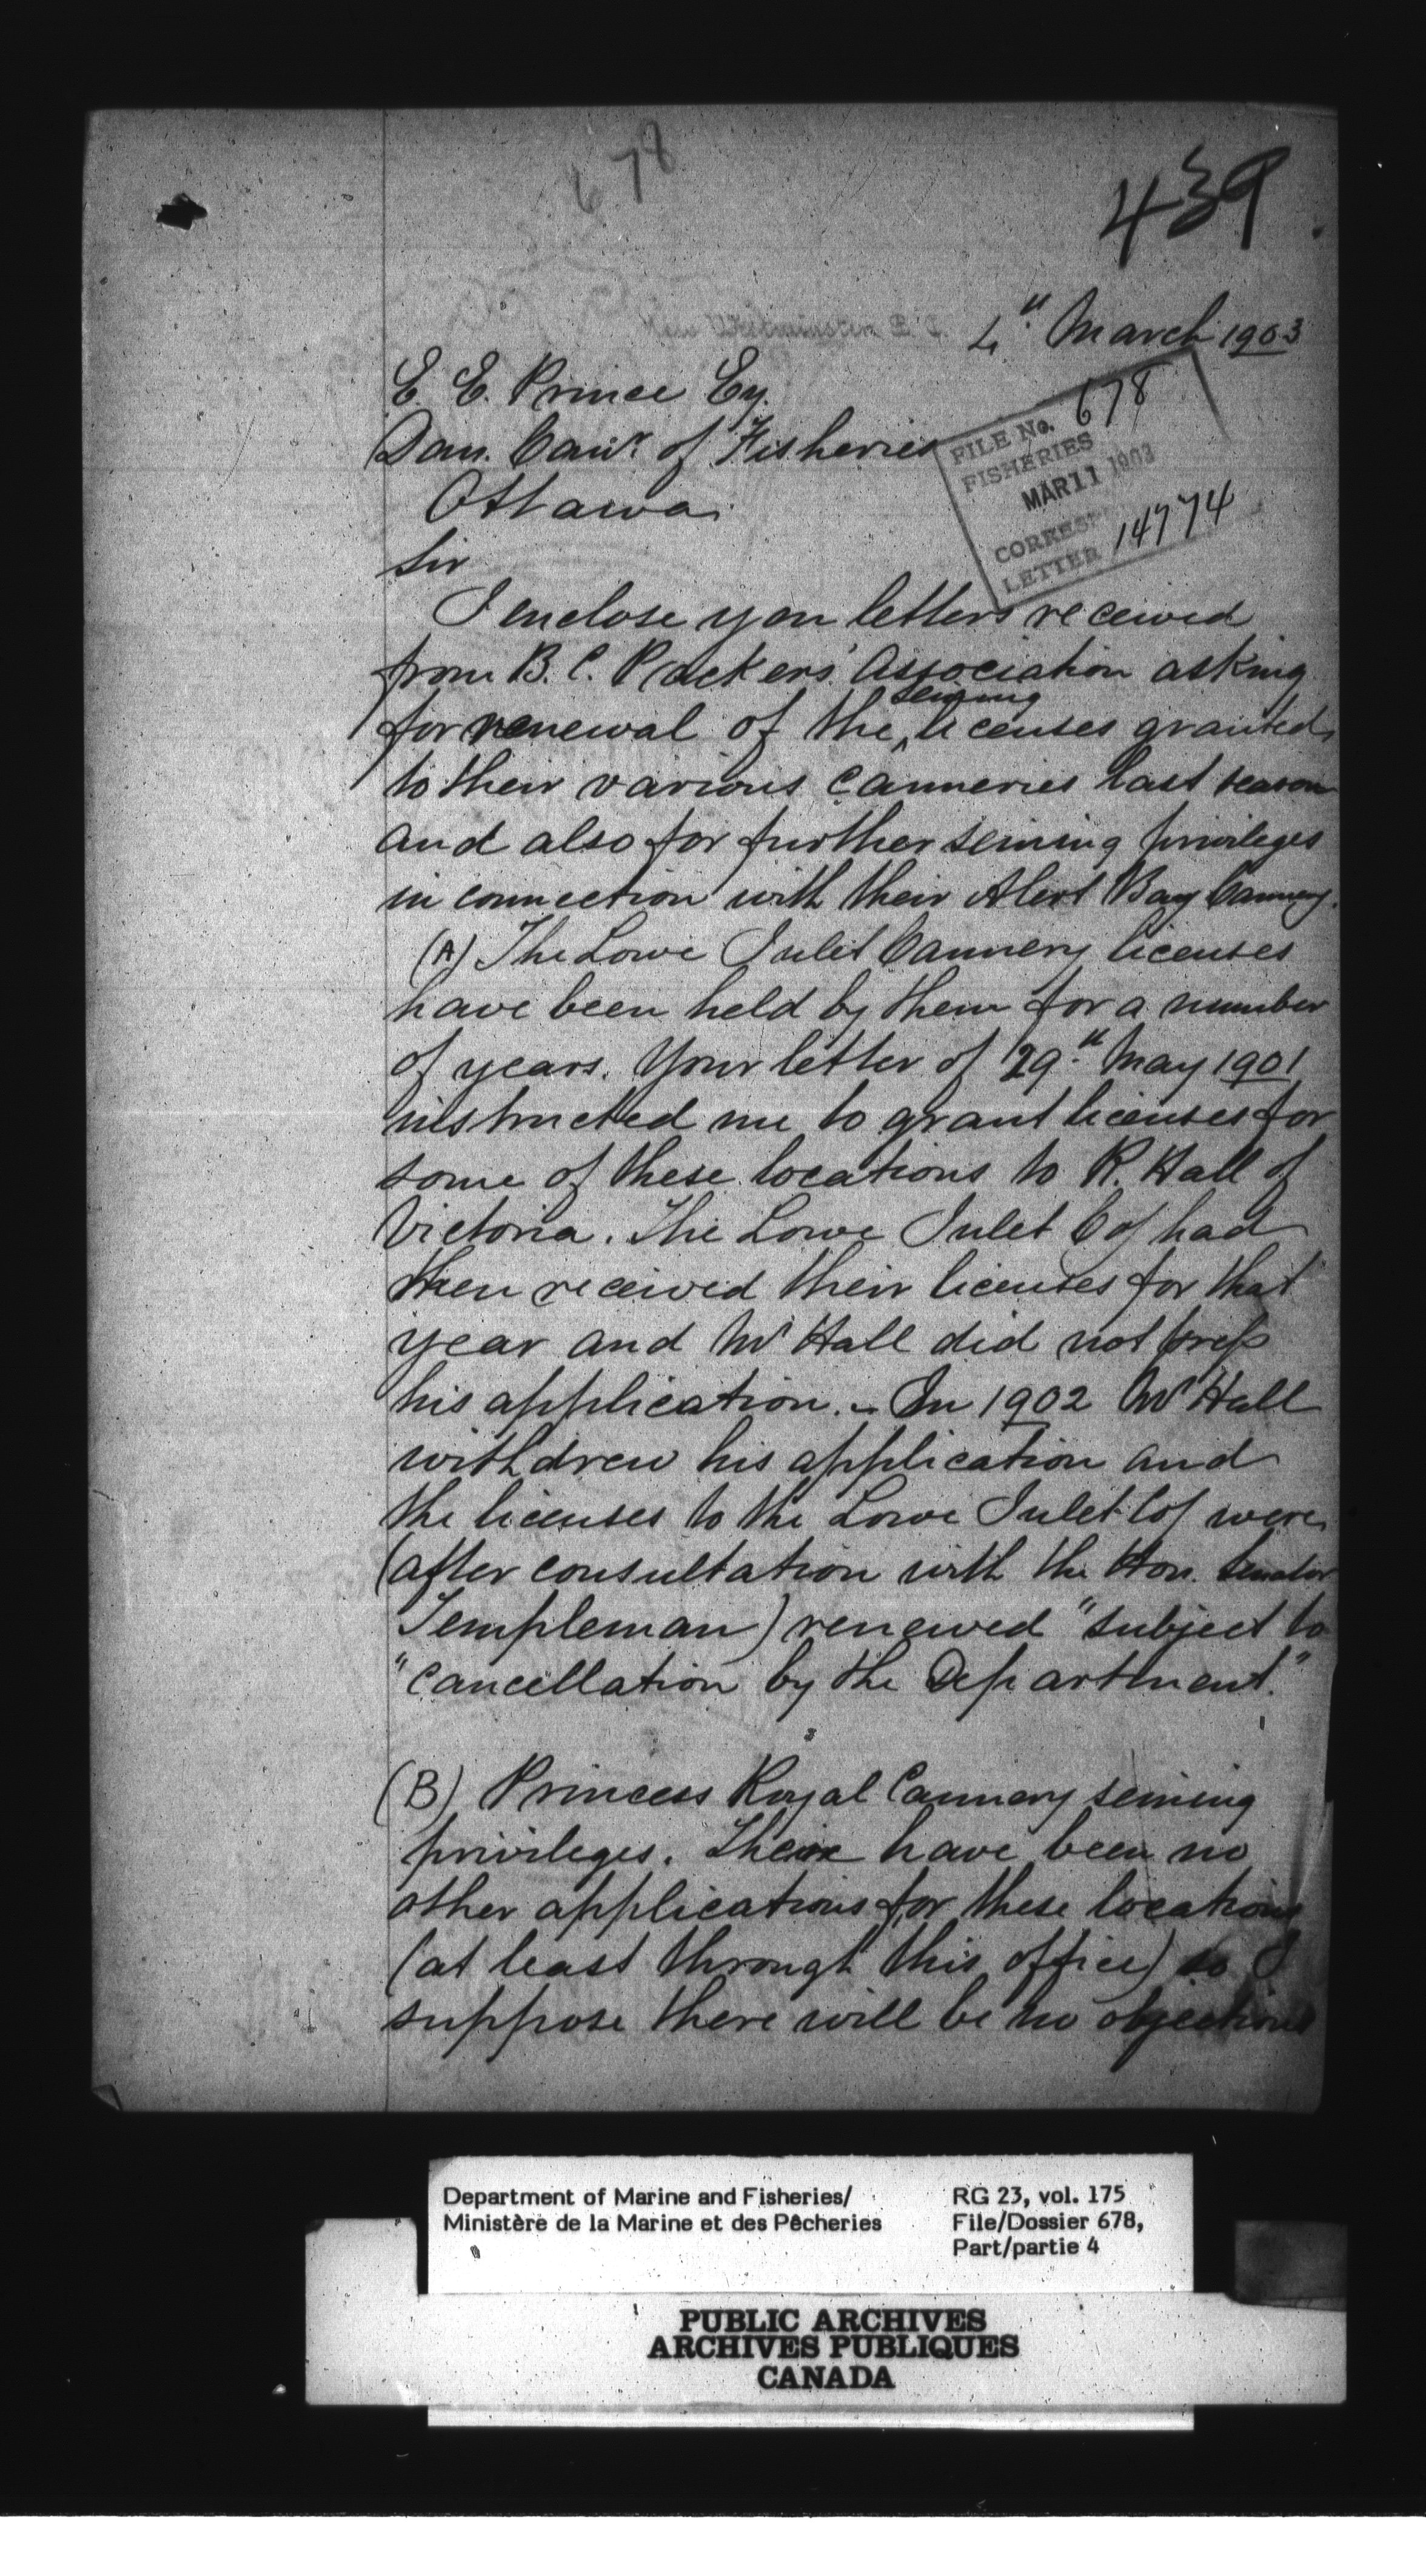 678
439
New Westminster, B. C. 4th March 1903
E. E. Prince Esq.
Dom. Comr. of Fisheries
Ottawa
FILE No. 678
FISHERIES
MAR 11 1903
CORRES
LETTER 14774
Sir
I enclose you letters received
from B. C. Packers' Association asking
seining
for renewal of the licenses granted
to their various canneries last season
and also for further seining privileges
in connection with their Alert Bay Cannery.
(A) The Lowe Inlet Cannery licenses
have been held by them for a number
of years. Your letter of 29th May 1901
instructed me to grant licenses for
some of these locations to R. Hall of
Victoria. The Lowe Inlet Coy had
then received their licenses for that
year and Mr Hall did not press
his application. - In 1902 Mr Hall
withdrew his application and
the licenses to the Lowe Inlet Coy were
(after consultation with the Hon. Senator
Templeman) renewed "subject to
"cancellation by the Department."
(B) Princess Royal Cannery seining
privileges. There have been no
other applications for these locations
(at least through this office) so I
suppose there will be no objections
Department of Marine and Fisheries/
Ministère de la Marine et des Pêcheries
RG 23, vol. 175
File/Dossier 678,
Part/partie 4
PUBLIC ARCHIVES
ARCHIVES PUBLIQUES
CANADA